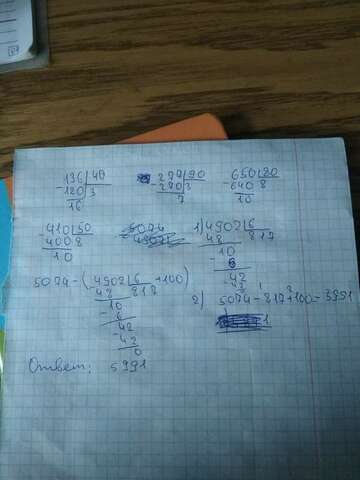 136 40 277 90 650 80
-120 3 -270 3 -640 8
16 7 10
410 50 5074 1) 4902 6
-400 8 48 817
10 10
- 6
42
- 42
5074-(4902 6 +100)
48 817
10
- 6
42
- 42
0
2) 5074-817+100=5951
1
Ответ: 5991